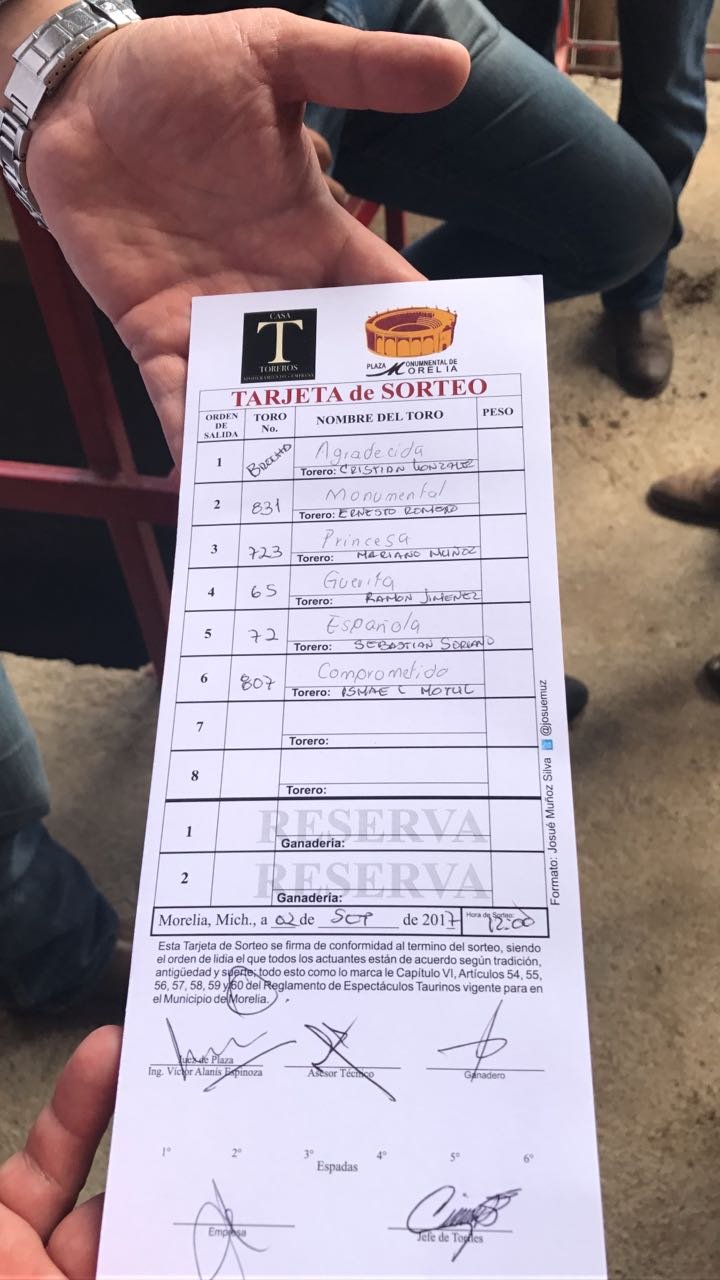 CASA
T
TOREROS
PLAZA MONUMNENTAL DE MORELIA
TARJETA de SORTEO
ORDEN DE SALIDA TORO No. NOMBRE DEL TORO PESO
1 Brocho Agradecida
Torero: CRISTIAN GONZALEZ
2 831 Monumental
Torero: ERNESTO ROMERO
3 723 Princesa
Torero: MARIANO MUÑOZ
4 65 Guerita
Torero: RAMON JIMENEZ
5 72 Española
Torero: SEBASTIAN SORIANO
6 807 Comprometido
Torero: ISMAEL MOTUL
7
Torero:
8
Torero:
1 RESERVA
Ganadería:
2 RESERVA
Ganadería:
Morelia, Mich., a 02 de SEP de 2017 Hora de Sorteo: 12:00
Esta Tarjeta de Sorteo se firma de conformidad al termino del sorteo, siendo
el orden de lidia el que todos los actuantes están de acuerdo según tradición,
antigüedad y suerte; todo esto como lo marca le Capítulo VI, Artículos 54, 55,
56, 57, 58, 59 y 60 del Reglamento de Espectáculos Taurinos vigente para en
el Municipio de Morelia.
Juez de Plaza
Ing. Víctor Alanís Espinoza Asesor Técnico Ganadero
1° 2° 3° 4° 5° 6°
Espadas
Empresa Jefe de Toriles
Formato: Josué Muñoz Silva @josuemuz